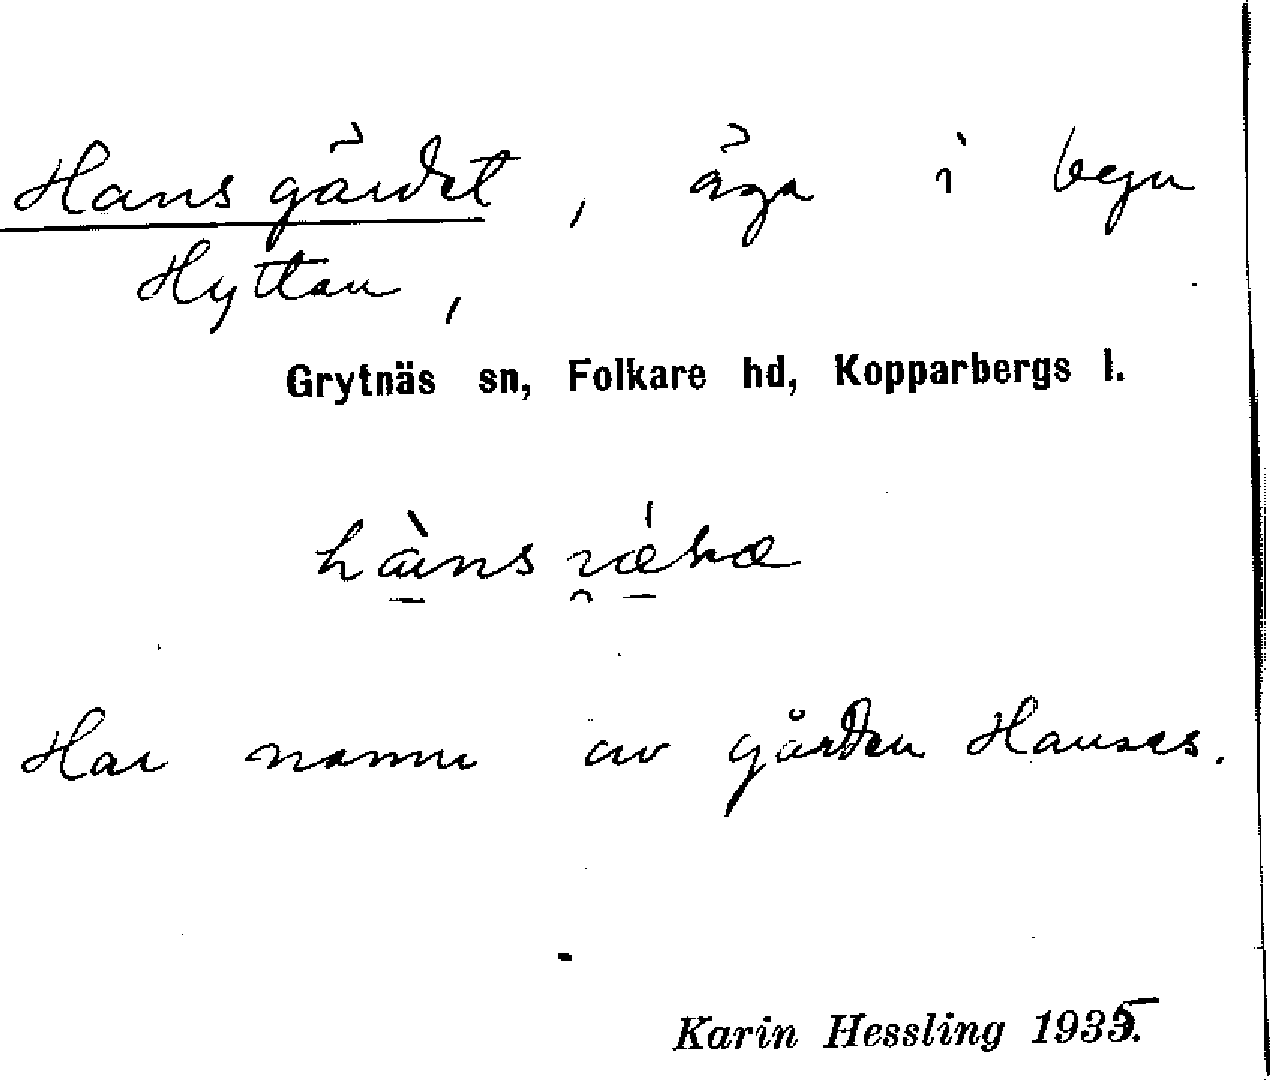 Hansgärdet, äga i byn
Hyttan,
Grytnäs sn, Folkare hd, Kopparbergs l.
Har namn av gården Hanses.
Karin Hessling 1935.